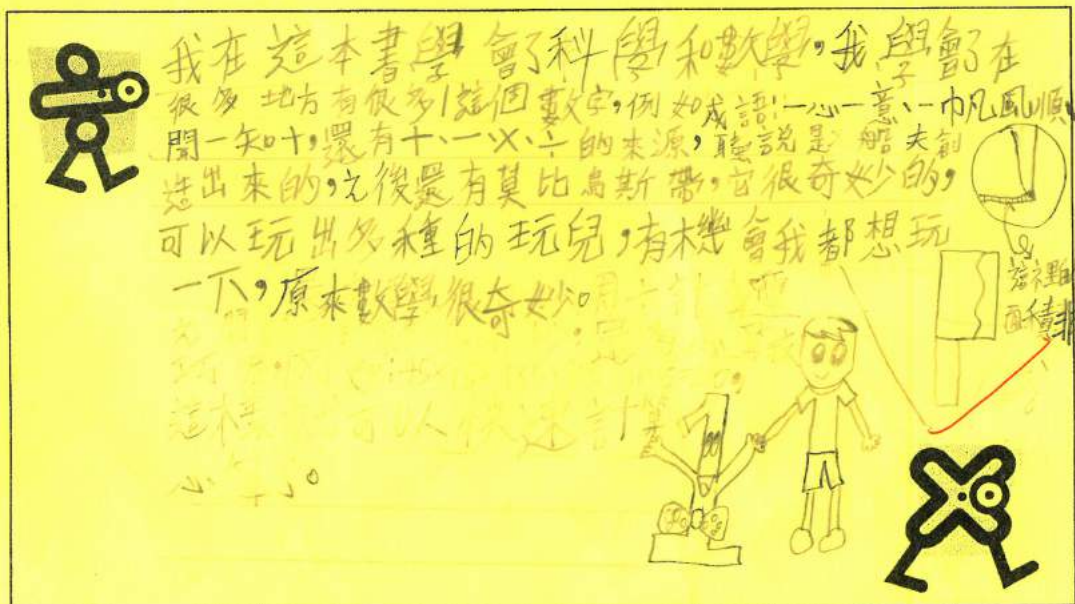 我在這本書學會了科學和數學，我學會了在
很多地方有很多1這個數字，例如成語:一心一意、一巾凡風順、
聞一知十，還有十、一、×、÷的來源，聽說是船夫創
造出來的，之後還有莫比烏斯帶，它很奇妙的，
可以玩出多種的玩兒，有機會我都想玩
一下，原來數學很奇妙。
這裡的
面積非
可以 快速計算